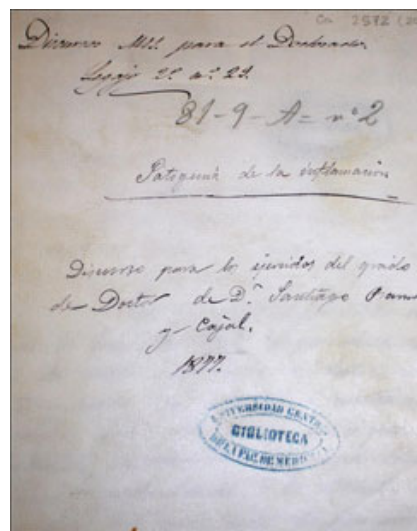 Ca 2572
Discurso MS. para el Doctorado
Legajo 2º nº 29.
81-9-A= nº 2
Patogenia de la inflamacion
Discurso para los ejercicios del grado
de Doctor de Dn. Santiago Ramon
y Cajal.
1877.
UNIVERSIDAD CENTRAL
BIBLIOTECA
DE LA FAC. DE MEDICINA